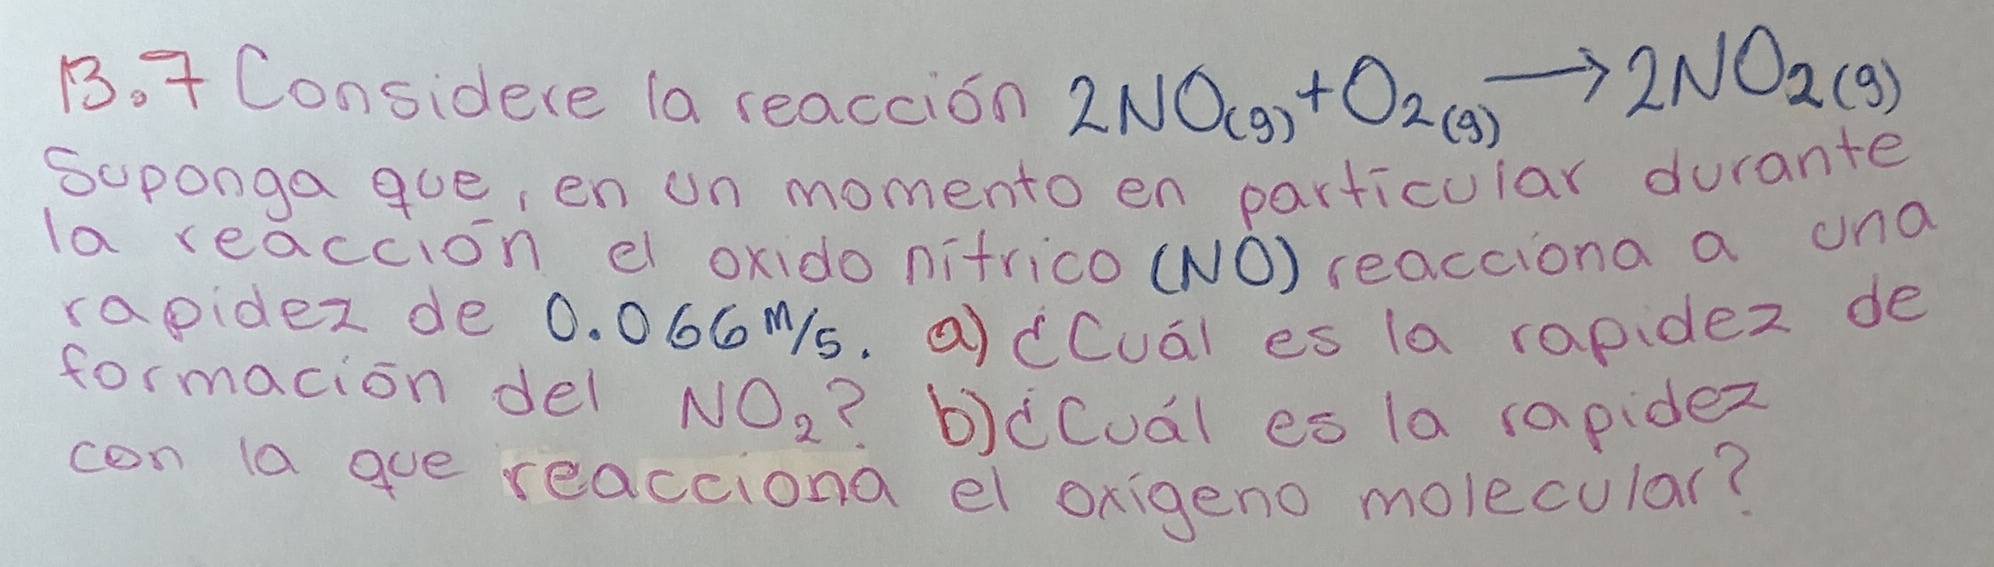 13.7 Considere la reacción 2NO(g)+O2(g)→2NO2(g)
Suponga que, en un momento en particular durante
la reacción el oxido nítrico (NO) reacciona a una
rapidez de 0.066 M/s. a) ¿Cuál es la rapidez de
formación del NO2? b) ¿Cuál es la rapidez
con la que reacciona el oxígeno molecular?